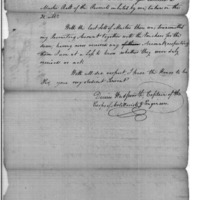 Muster Roll of the Recruits enlisted by me before in the
With the last Roll of Muster there was transmitted
my Recruiting Account together with the Vouchers for the
same, having never received any Answer respecting
them I am at a loss to know whether they were duly
received or not.
With all due respect, I have the Honor to be
Sir your very obedient Servant
Decius Wadsworth, Captain of the
Corps of Artillerists & Engineers